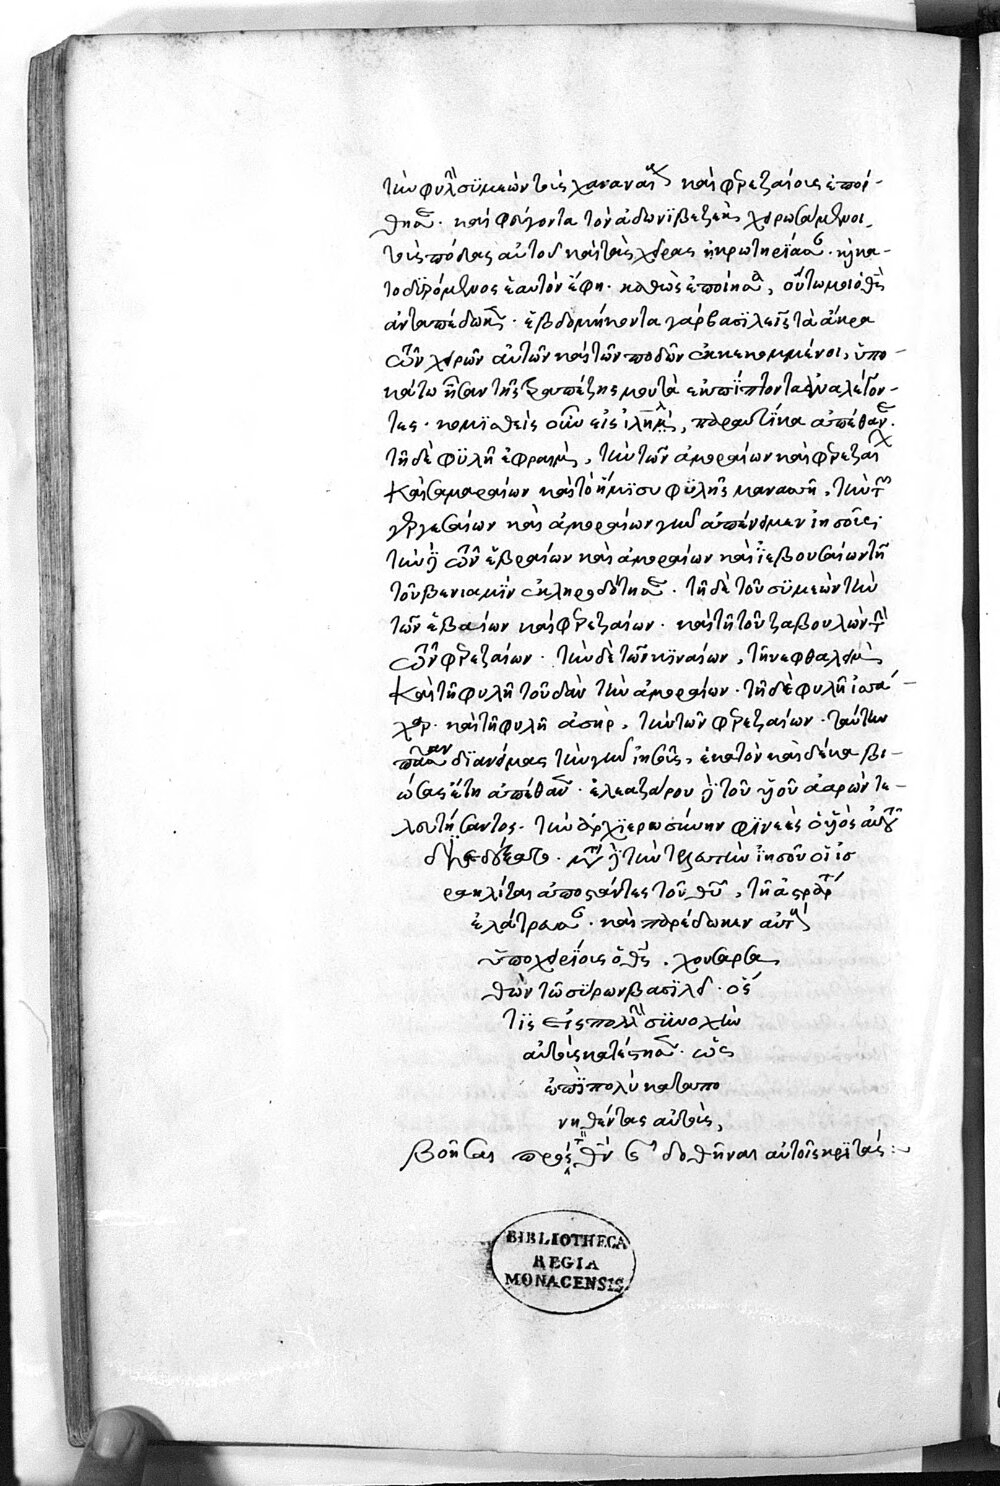 τὴν φυλὴν συμεὼν τοῖς χαναναίοις καὶ φερεζαίοις ἐπορ-
θησαν. καὶ φεύγοντα τὸν ἀδωνϊβεζὲκ χειρωσάμενοι,
τοὺς πόδας αὐτοῦ καὶ τὰς χεῖρας ἠκρωτηρίασαν.
τοδυρόμενος ἑαυτὸν ἔφη. καθὼς ἐποίησα, οὕτω μοι ὁ θεὸς
ἀνταπέδωκεν. ἑβδομήκοντα γὰρ βασϊλεῖς τὰ ἄκρα
τῶν χειρῶν αὐτῶν καὶ τῶν ποδῶν ἐκκεκομμένοι, ὑπο-
κάτω ἦσαν τῆς τραπέζης μου τὰ ἐκπίπτοντα ἀναλέγον-
τες. κομϊσθεὶς οὖν εἰς ἱλημ, παραυτίκα ἀπέθανεν.
τῇ δὲ φϋλῇ ἐφραὶμ, τὴν τῶν ἀμοραίων καὶ φερεζαίων
καὶ σαμαραίων καὶ τὸ ἥμϊσυ φϋλῆς μανασσῆ, τὴν τῶν
γεργεσαίων καὶ ἀμοραίων γῆν ἀπένειμεν ἰησοῦς.
τὴν δὲ τῶν ἑβραίων καὶ ἀμοραίων καὶ ἰεβουσαίων τῇ
τοῦ βενιαμὶν ἐκληροδότησεν. τῇ δὲ τοῦ συμεὼν τὴν
τῶν ἐβαίων καὶ φερεζαίων. καὶ τῇ τοῦ ζαβουλὼν τὴν
τῶν φερεζαίων. τὴν δὲ τῶν κϊναίων, τῇ νεφθαλεὶμ,
καὶ τῇ φυλῇ τοῦ δὰν τὴν ἀμοραίων. τῇ δὲ φυλῇ ἰσα-
χαρ. καὶ τῇ φυλῇ ἀσὴρ, τὴν τῶν φερεζαίων. ταύτην
πᾶσαν διανείμας τὴν γῆν ἰησοῦς, ἑκατὸν καὶ δέκα βι-
ώσας ἔτη ἀπέθανεν. ἐλεαζάρου δὲ τοῦ υἱοῦ ἀαρὼν τε-
λευτήσαντος. τὴν ἀρχϊερωσύνην φϊνεὲς ὁ υἱὸς αὐτοῦ
διεδέξατο. μετὰ δὲ τὴν τελευτὴν ἰησοῦ οἱ ἰσ
ραηλῖται ἀποστάντες τοῦ θεοῦ, τῇ ἀστάρτῃ
ἐλάτρευσαν. καὶ παρέδωκεν αὐτοὺς
ὑποχειρίοις ὁ θεὸς, χουσαρσα
θὼν τῷ σύρων βασϊλεῖ. ὅς
τις εἰς πολλὴν συνοχὴν
αὐτοὺς κατέστησεν. ὡς
ἐπϊπολὺ καταπο
νηθέντας αὐτοὺς,
βοῆσαι πρὸς τὸν θεὸν δοθῆναι αὐτοῖς κρϊτάς:
BIBLIOTHECA
REGIA
MONACENSIS.